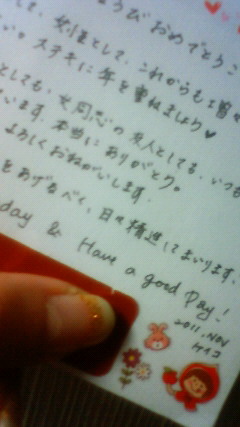 うび おめでとう
して、これからも
い。ステキに年を重ねましょう♥
としても、女同志の友人としても、いつも
います。本当に ありがとう。
よろしくおねがいします。
をあげるべく、日々精進してまいります。
day & Have a good Day!
2011. NOV
ケイコ